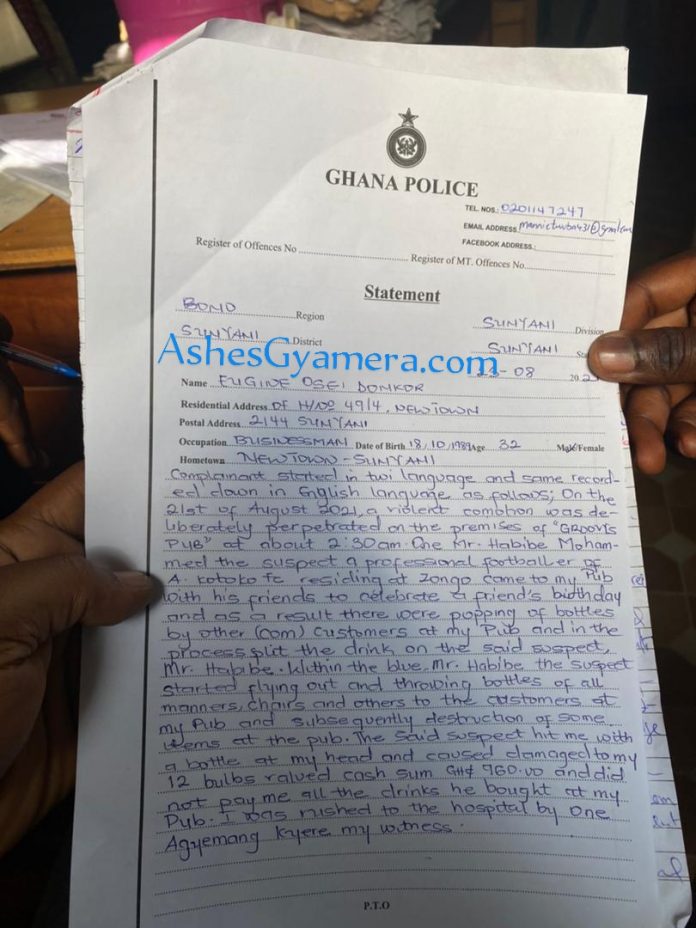 GHANA POLICE
TEL. NOS.: 0201147247
EMAIL ADDRESS.
FACEBOOK ADDRESS.:
Register of Offences No
Register of MT. Offences No.
Statement
BONO Region
SUNYANI Division
SUNYANI District
SUNYANI
AshesGyamera.com
-08 20
Name EUGINE OSEI DONKOR
Residential Address OF H/NO 49/4, NEWTOWN
Postal Address 2144 SUNYANI
Occupation BUSINESSMAN Date of Birth 18.10.1989 Age 32 Male/Female
Hometown NEWTOWN-SUNYANI
Complainant started in twi language and same record-
ed down in English language as follows; On the
21st of August 2021, a violent comotion was de-
liberately perpetrated on the premises of "GROOVIS
PUB" at about 2:30am. One Mr. Habibe Moham-
med the suspect a professional footballer of
A. Kotoko fc residing at Zongo came to my Pub
with his friends to celebrate a friend's birthday
and as a result there were popping of bottles
by other (com) Customers at my Pub and in the
process split the drink on the said suspect,
Mr. Habibe. Within the blue, Mr. Habibe the suspect
started flying out and throwing bottles of all
manners, chairs and others to the customers at
my Pub and subsequently destruction of some
items at the pub. The said suspect hit me with
a bottle at my head and caused damaged to my
12 bulbs valued cash sum GH¢ 960.00 and did
not pay me all the drinks he bought at my
Pub. I was rushed to the hospital by one
Agyemang Kyere my witness.
P.T.O